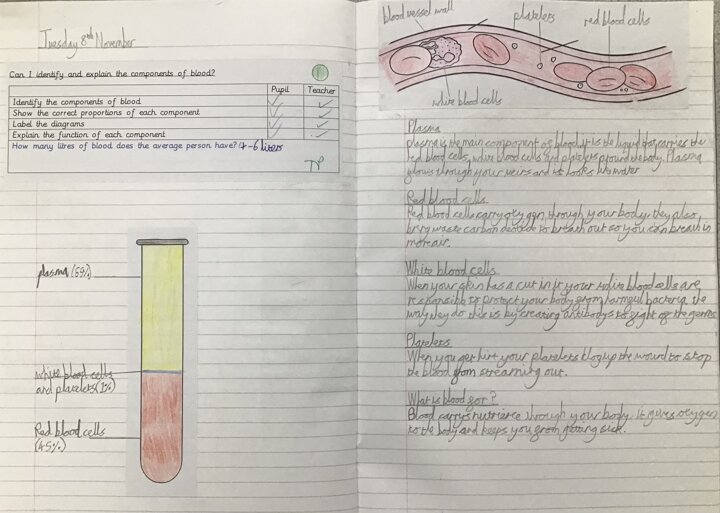 Tuesday 8th November
Can I identify and explain the components of blood?
Pupil Teacher
Identify the components of blood
Show the correct proportions of each component
Label the diagrams
Explain the function of each component
How many litres of blood does the average person have? 4-6 liters
TP
plasma (55%)
white blood cells
and platelets (1%)
Red blood cells
(45%)
blood vessel wall
platelets
red blood cells
white blood cells
Plasma
plasma is the main component of blood. It is the liquid that carries the
red blood cells, white blood cells and platelets around the body. Plasma
flows through your veins and it looks like water
Red blood cells
Red blood cells carry oxygen through your body, they also
bring waste carbon dioxide to breath out so you can breath in
more air.
White blood cells
When your skin has a cut in it your white blood cells are
responsible to protect your body from harmful bacteria the
way they do this is by creating antibodys to fight of the germs
Platelets
When you get hurt your platelets clog up the wound to stop
the blood from streaming out.
What is blood for?
Blood carrys nutrience through your body. It gives oxygen
to the body and keeps you from getting sick.